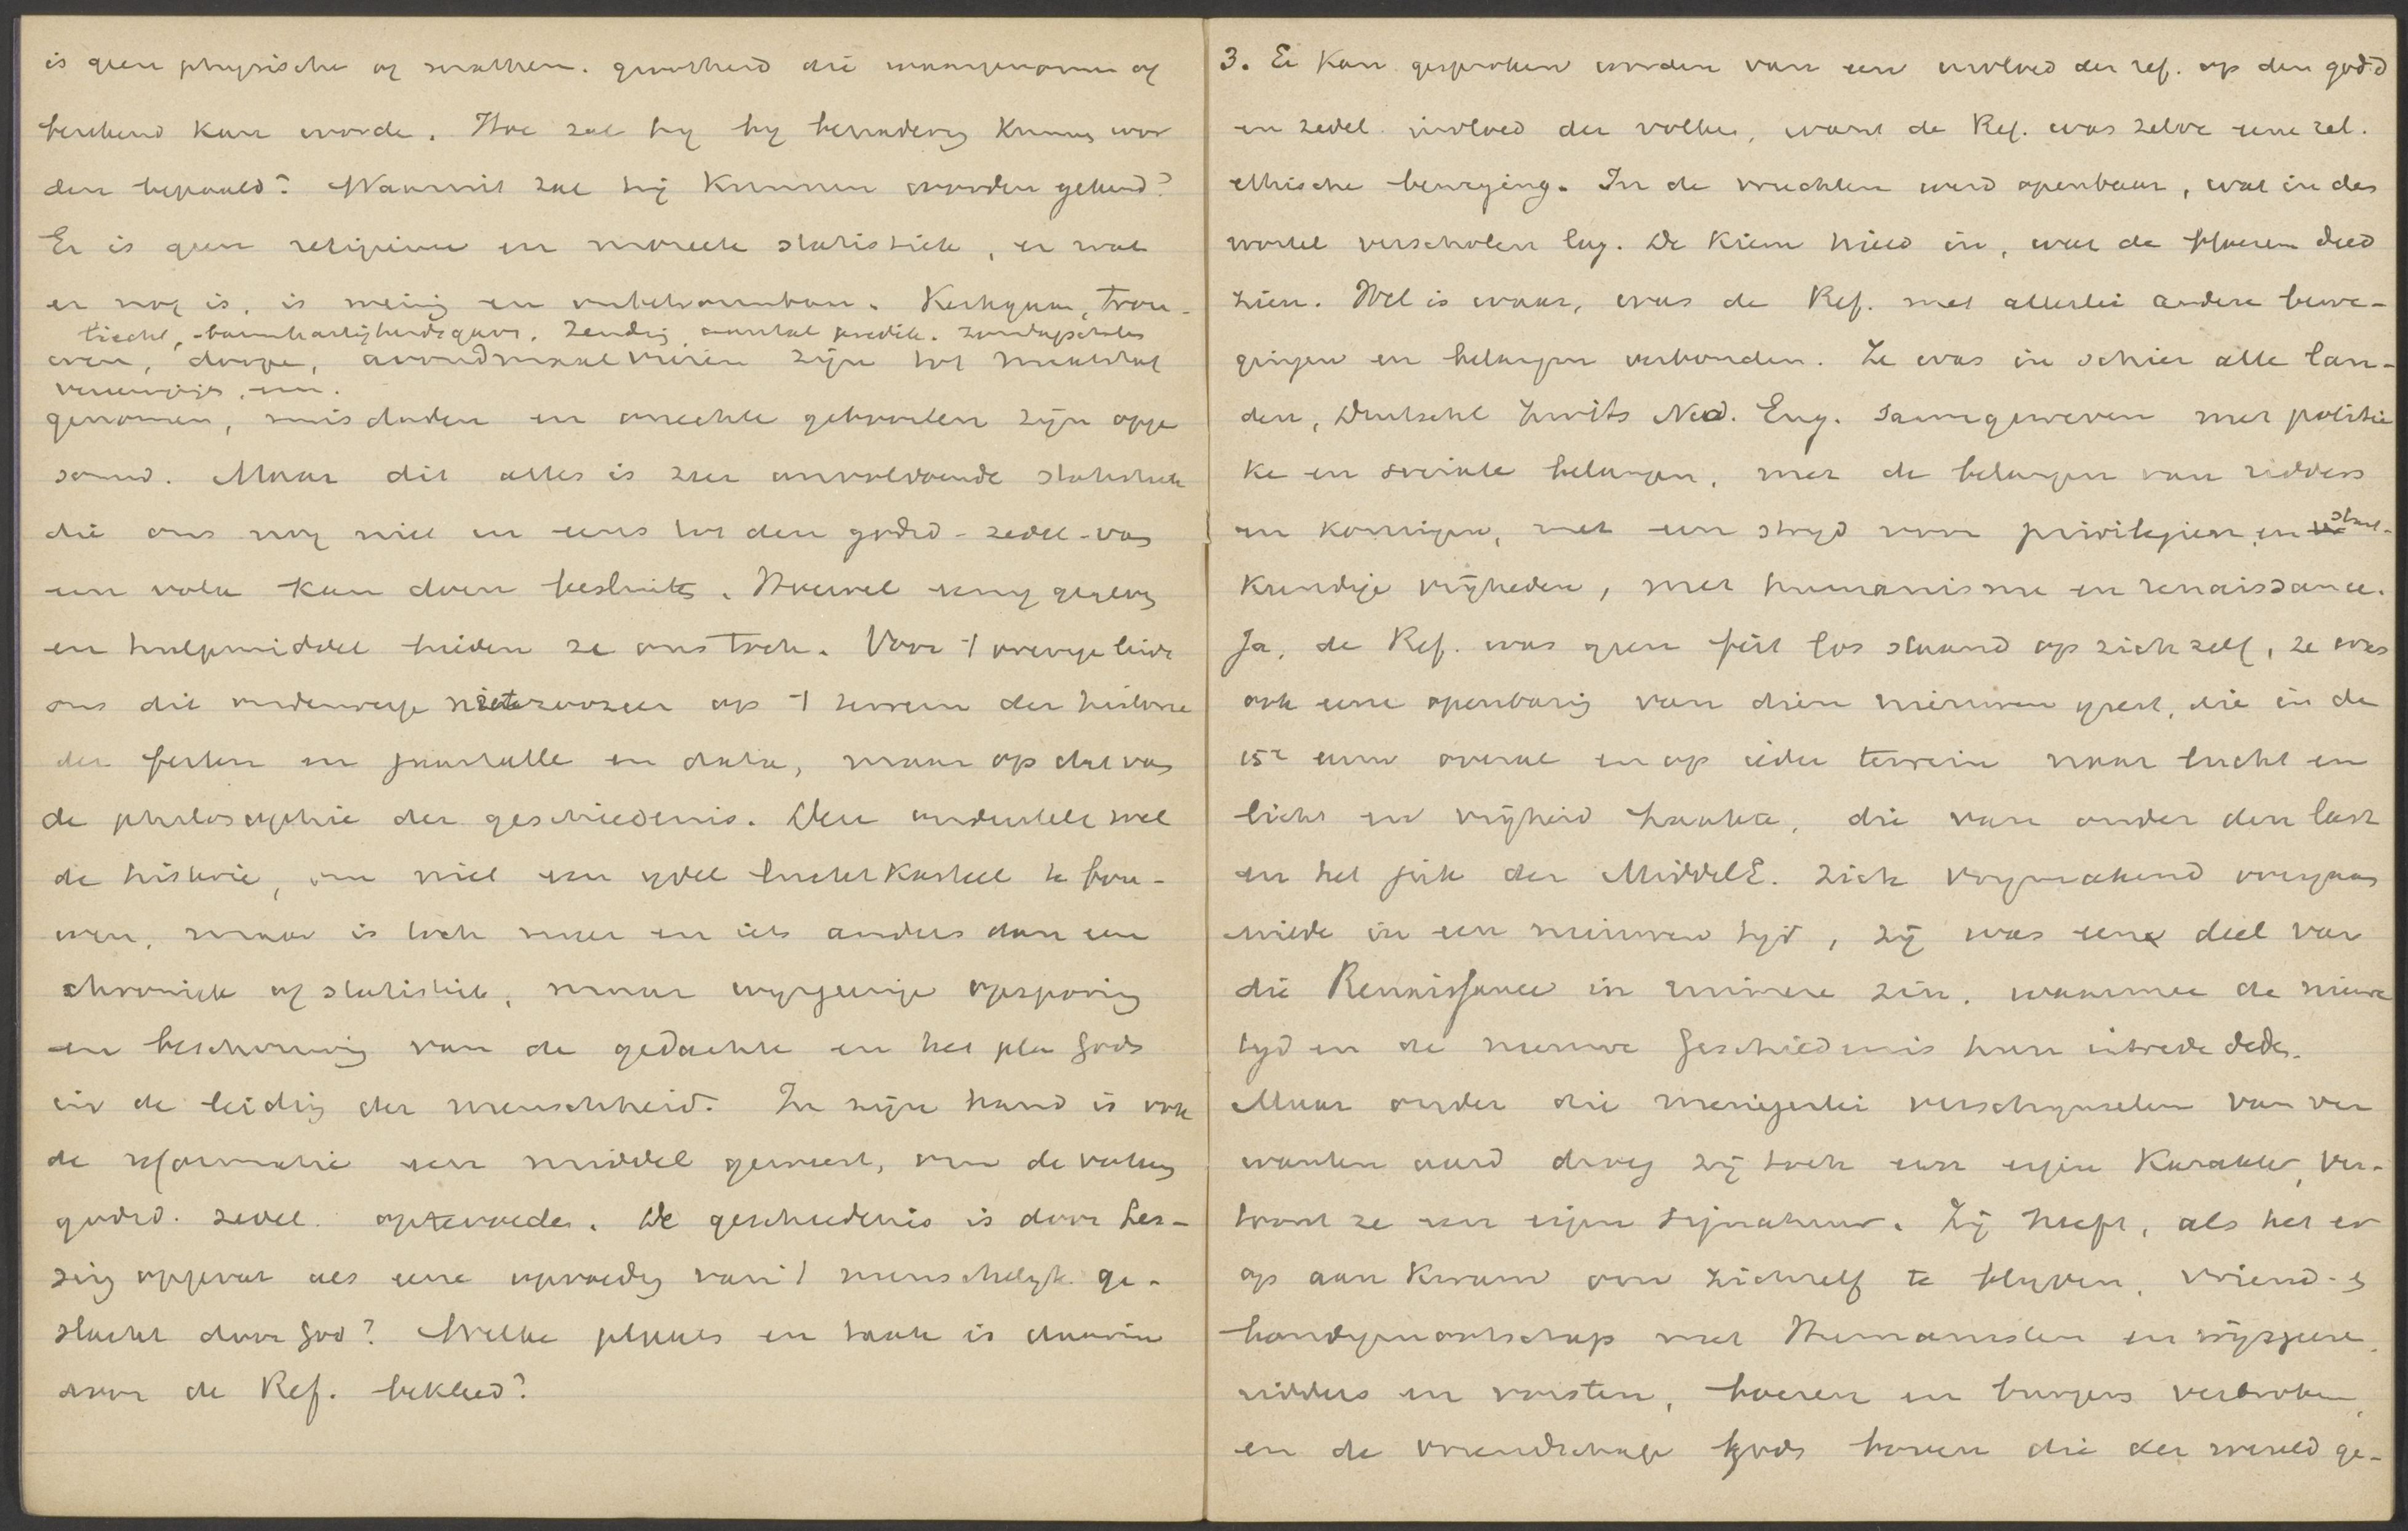 is geen physische of mathem. grootheid die waargenomen of
berekend kan worde. Hoe zal hy by benadering kunnen wor
den bepaald? Waaruit zal hij kunnen worden gekend?
Er is geen religieuse en moreele statistiek, en wat
er nog is, is weinig en onbetrouwbaar. Kerkgaan, trou-
tiecht, barmhartigheidsgaven. Zending, aantal predik. zondagscholen
wen, doope, avondmaal vieren zijn tot maatstaf
vereenigingen, enz.
genomen, misdaden en onechte geboorten zijn opge
somd. Maar dit alles is zeer onvoldoende statistiek
die ons nog niet en eens tot den godsd-zedel-van
een volk kan doen besluiten. Hoewel eenig gegeven
en hulpmiddel bieden ze ons toch. Voor 't overige leidt
ons dit onderwerp niet zoozeer op 't terrein der historie
der feiten en jaartallen en data, maar op dat van
de philosophie der geschiedenis. Deze onderstelt wel
de historie, om niet een ydel luchtkasteel te bou-
wen, maar is toch meer en iets anders dan een
chroniek of statistiek, maar wysgeerige opsporing
en beschouwing van de gedachte en het plan Gods
in de leiding der menschheid. In zijn hand is ook
de reformatie een middel geweest, om de volken
godsd. zedel. optevoeden. De geschiedenis is door Les-
sing opgevat als eene opvoeding van 't menschelyk ge-
slacht door God? Welke plaats en taak is daarin
door de Ref. bekleed?
3. Er kan gesproken worden van een invloed der ref. op den godsd
en zedel. invloed der volken, want de Ref. was zelve eene rel.
ethische beweging. In de vruchten werd openbaar, wat in des
wortel verscholen lag. De kiem hield in, wat de bloesem deed
zien. Wel is waar, was de Ref. met allerlei andere bewe-
gingen en belangen verbonden. Ze was in schier alle lan-
den, Duitschl Zwits Ned. Eng. saamgeweven met politie
ke en sociale belangen, met de belangen van ridders
en koningen, met een stryd voor privilegien en staat-
kundige vrijheden, met humanisme en renaissance.
Ja, de Ref. was geen feit los staand op zich zelf, ze was
ook eene openbaring van dien nieuwen geest, die in de
15e eeuw overal en op ieder terrein naar lucht en
licht en vrijheid haakte, die van onder den last
en het juk der MiddelE. zich vrymakend overgaan
wilde in een nieuwen tyd, zij was een deel van
die Renaissance in ruimere zin, waarmee de nieuwe
tyd en de nieuwe Geschiedenis hun intrede deden.
Maar onder die menigerlei verschynselen van ver
wanten aard droeg zij toch een eigen karakter, ver-
toont ze een eigen signatuur. Zij heeft, als het er
op aan kwam om zichzelf te blyven, vriend- en
bondgenootschap met Humanisten en wijsgeeren,
ridders en vorsten, boeren en burgers verbroken,
en de vriendschap Gods boven die der wereld ge-